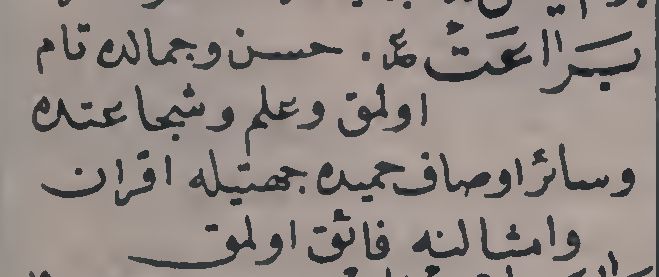 بَراعَتْ ع. حسن وجمالده تام
اولمق وعلم وشجاعتده
وسائر اوصاف حميده جهتيله اقران
وامثالنه فائق اولمق